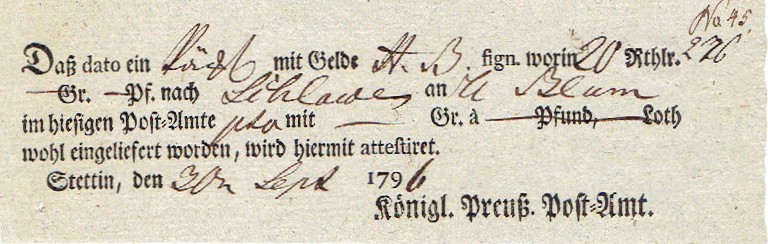 No 45
Daß dato ein Päckl mit Gelde H. B. sign. worin 20 Rthlr. 226
— Gr. — Pf. nach Schlawe an H Blum
im hiesigen Post-Amte pto mit — Gr. à — Pfund, — Loth
wohl eingeliefert worden, wird hiermit attestiret.
Stettin, den 30n Sept 1796
Königl. Preuß. Post-Amt.